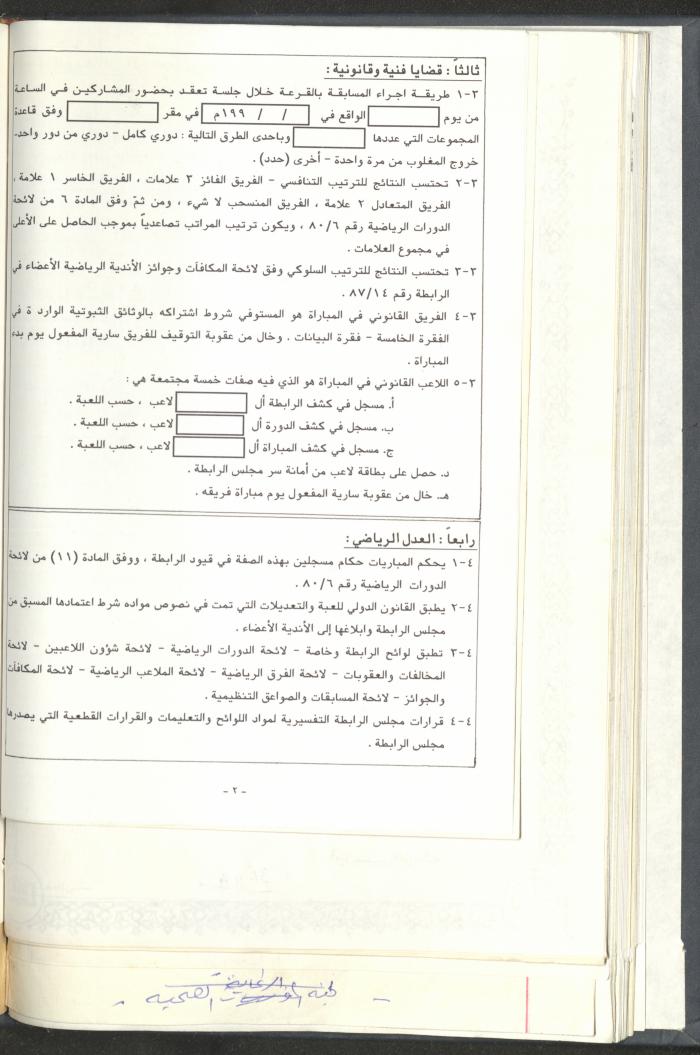 ثالثاً : قضايا فنية وقانونية :
٣-١ طريقة اجراء المسابقة بالقرعة خلال جلسة تعقد بحضور المشاركين في الساعة
من يوم الواقع في / / ١٩٩م في مقر وفق قاعدة
المجموعات التي عددها وباحدى الطرق التالية : دوري كامل - دوري من دور واحد-
خروج المغلوب من مرة واحدة - أخرى (حدد) .
٣-٢ تحتسب النتائج للترتيب التنافسي - الفريق الفائز ٣ علامات ، الفريق الخاسر ١ علامة ،
الفريق المتعادل ٢ علامة ، الفريق المنسحب لا شيء ، ومن ثمّ وفق المادة ٦ من لائحة
الدورات الرياضية رقم ٨٠/٦ ، ويكون ترتيب المراتب تصاعدياً بموجب الحاصل على الأعلى
في مجموع العلامات .
٣-٣ تحتسب النتائج للترتيب السلوكي وفق لائحة المكافآت وجوائز الأندية الرياضية الأعضاء في
الرابطة رقم ٨٧/١٤ .
٣-٤ الفريق القانوني في المباراة هو المستوفي شروط اشتراكه بالوثائق الثبوتية الوارد ة في
الفقرة الخامسة - فقرة البيانات . وخال من عقوبة التوقيف للفريق سارية المفعول يوم بدء
المباراة .
٣-٥ اللاعب القانوني في المباراة هو الذي فيه صفات خمسة مجتمعة هي :
أ. مسجل في كشف الرابطة أل لاعب ، حسب اللعبة .
ب. مسجل في كشف الدورة أل لاعب ، حسب اللعبة .
ج. مسجل في كشف المباراة أل لاعب ، حسب اللعبة .
د. حصل على بطاقة لاعب من أمانة سر مجلس الرابطة .
هـ. خال من عقوبة سارية المفعول يوم مباراة فريقه .
رابعاً : العدل الرياضي :
٤-١ يحكم المباريات حكام مسجلين بهذه الصفة في قيود الرابطة ، ووفق المادة (١١) من لائحة
الدورات الرياضية رقم ٨٠/٦ .
٤-٢ يطبق القانون الدولي للعبة والتعديلات التي تمت في نصوص مواده شرط اعتمادها المسبق من
مجلس الرابطة وابلاغها إلى الأندية الأعضاء .
٤-٣ تطبق لوائح الرابطة وخاصة - لائحة الدورات الرياضية - لائحة شؤون اللاعبين - لائحة
المخالفات والعقوبات - لائحة الفرق الرياضية - لائحة الملاعب الرياضية - لائحة المكافآت
والجوائز - لائحة المسابقات والصواعق التنظيمية .
٤-٤ قرارات مجلس الرابطة التفسيرية لمواد اللوائح والتعليمات والقرارات القطعية التي يصدرها
مجلس الرابطة .
- ٢ -
لجنة الصحية